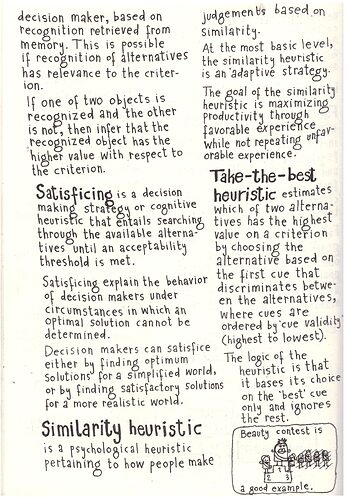 decision maker, based on
recognition retrieved from
memory. This is possible
if recognition of alternatives
has relevance to the criter-
ion.
If one of two objects is
recognized and the other
is not, then infer that the
recognized object has the
higher value with respect to
the criterion.
Satisficing is a decision
making strategy or cognitive
heuristic that entails searching
through the available alterna-
tives until an acceptability
threshold is met.
Satisficing explain the behavior
of decision makers under
circumstances in which an
optimal solution cannot be
determined.
Decision makers can satisfice
either by finding optimum
solutions for a simplified world,
or by finding satisfactory solutions
for a more realistic world.
Similarity heuristic
is a psychological heuristic
pertaining to how people make
judgements based on
similarity.
At the most basic level,
the similarity heuristic
is an adaptive strategy.
The goal of the similarity
heuristic is maximizing
productivity through
favorable experience
while not repeating unfav-
orable experience.
Take-the-best
heuristic estimates
which of two alterna-
tives has the highest
value on a criterion
by choosing the
alternative based on
the first cue that
discriminates betwe-
en the alternatives,
where cues are
ordered by cue validity
(highest to lowest).
The logic of the
heuristic is that
it bases its choice
on the 'best' cue
only and ignores
the rest.
Beauty contest is
2 1 3
a good example.